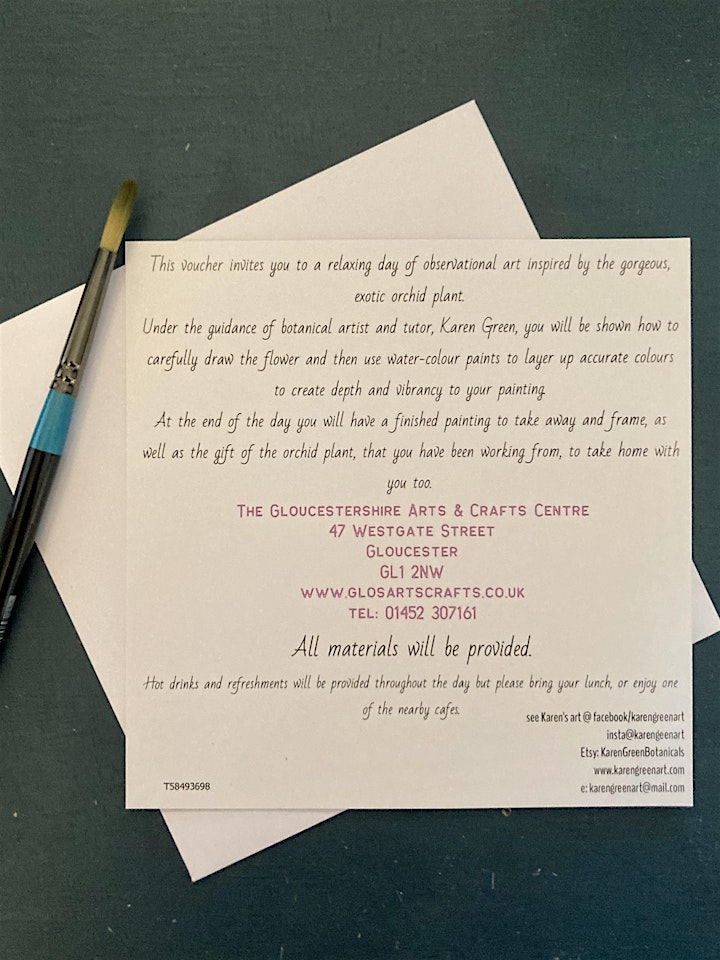 This voucher invites you to a relaxing day of observational art inspired by the gorgeous,
exotic orchid plant.
Under the guidance of botanical artist and tutor, Karen Green, you will be shown how to
carefully draw the flower and then use water-colour paints to layer up accurate colours
to create depth and vibrancy to your painting.
At the end of the day you will have a finished painting to take away and frame, as
well as the gift of the orchid plant, that you have been working from, to take home with
you too.
The Gloucestershire Arts & Crafts Centre
47 Westgate Street
Gloucester
GL1 2NW
www.glosartscrafts.co.uk
tel: 01452 307161
All materials will be provided.
Hot drinks and refreshments will be provided throughout the day but please bring your lunch, or enjoy one
of the nearby cafes.
see Karen's art @ facebook/karengreenart
insta@karengeenart
Etsy: KarenGreenBotanicals
www.karengreenart.com
e: karengreenart@mail.com
T58493698